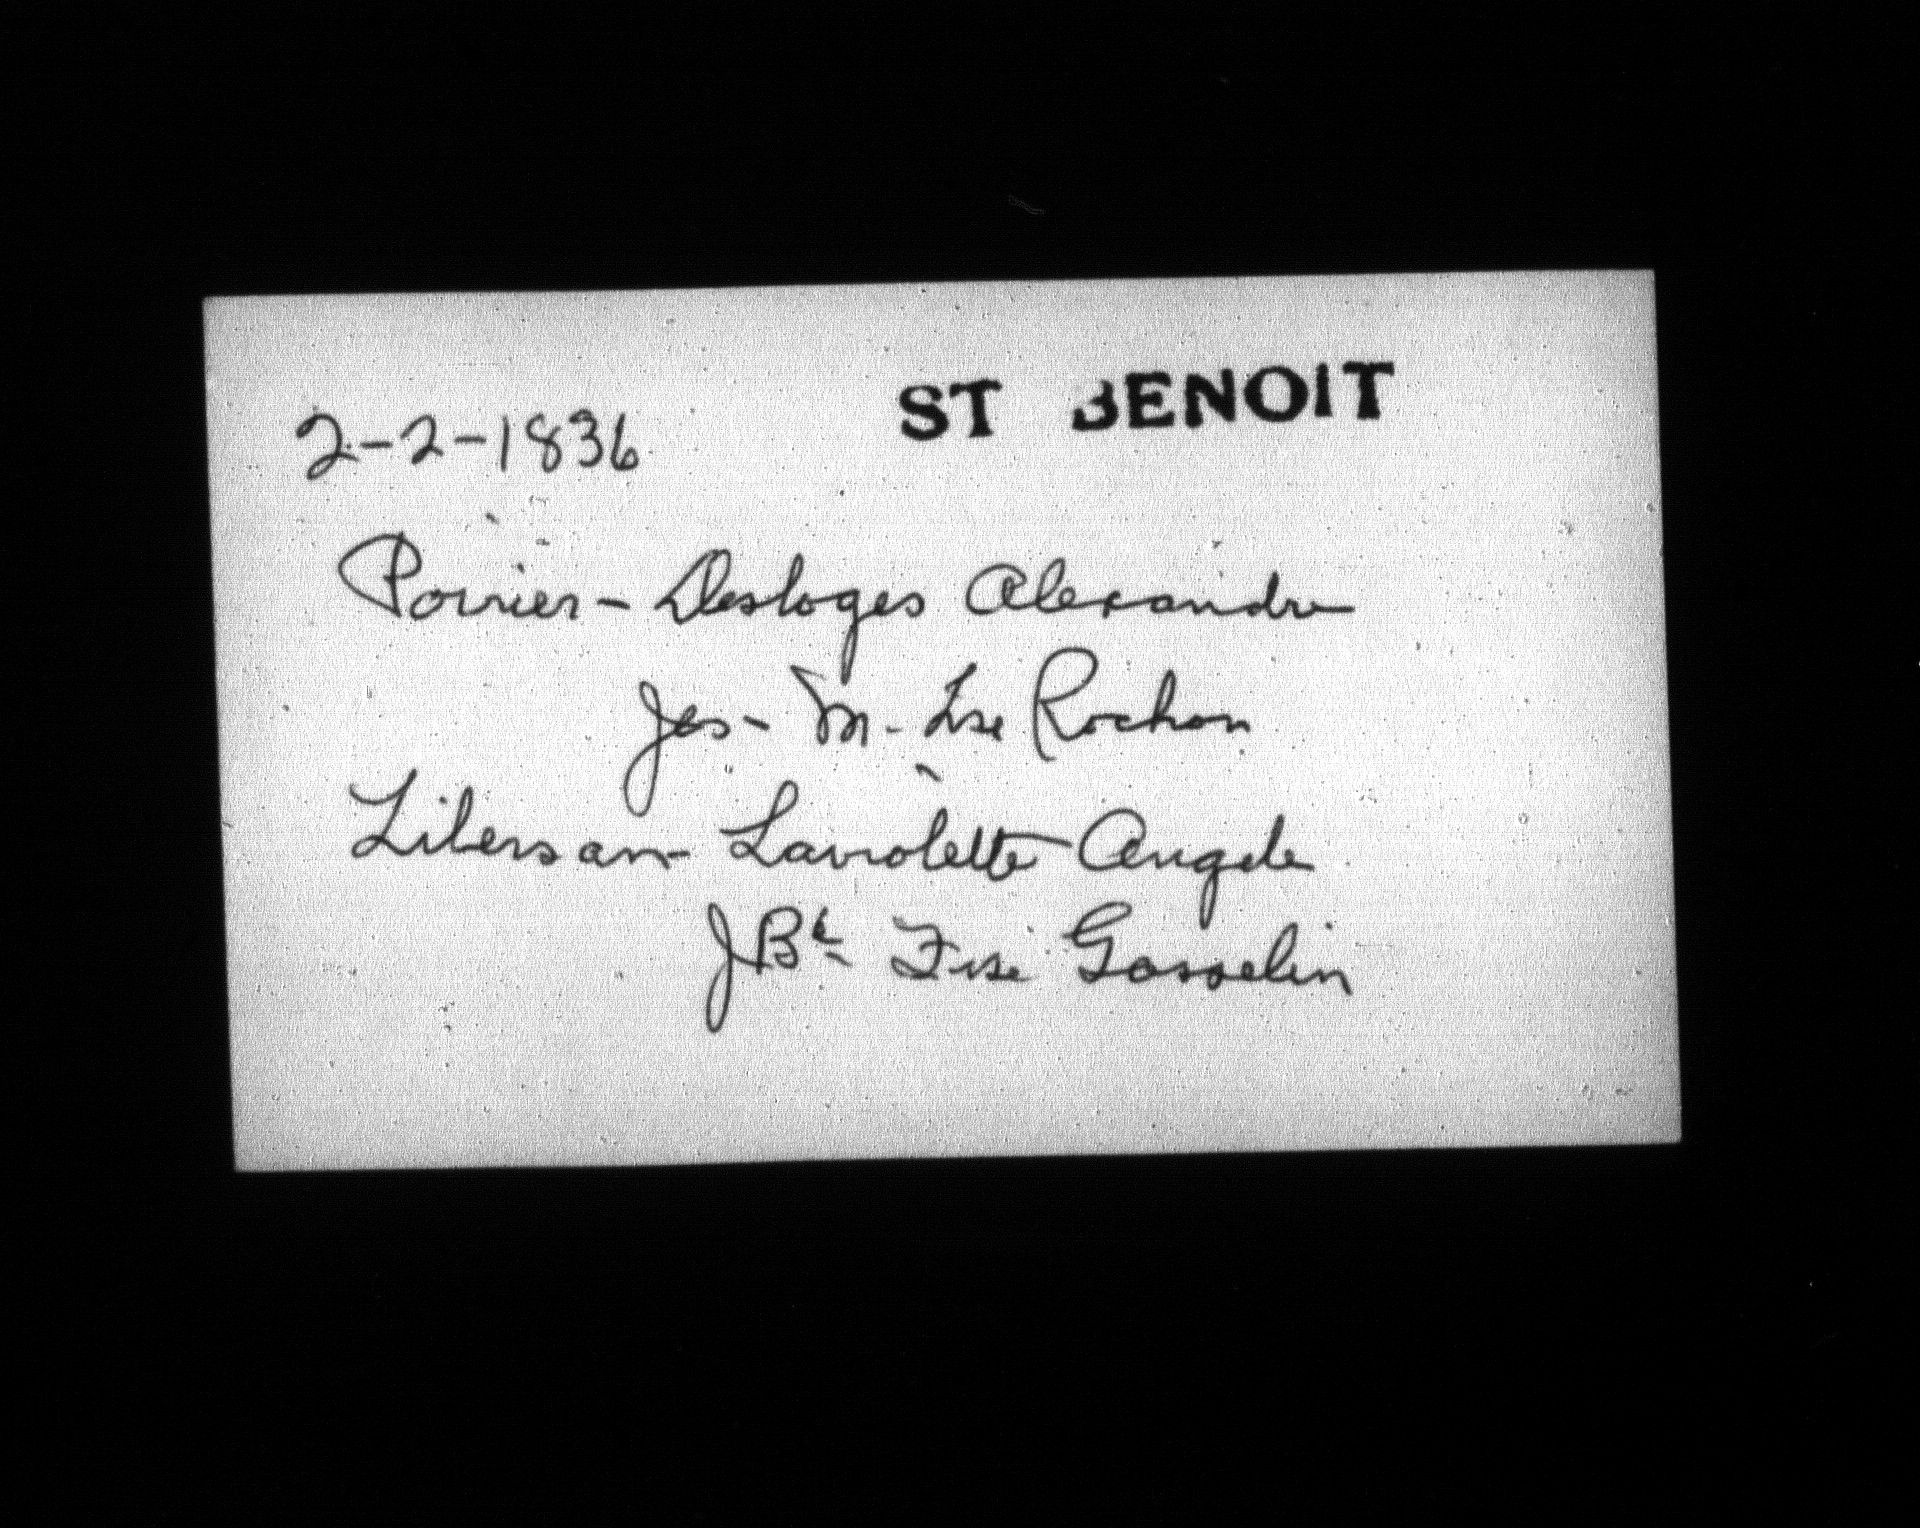 2-2-1836 ST BENOIT
Poirier - Desloges Alexandre
Jos - M - Lse Rochon
Libersan - Laviolette Angele
J Bt - Frse Gosselin